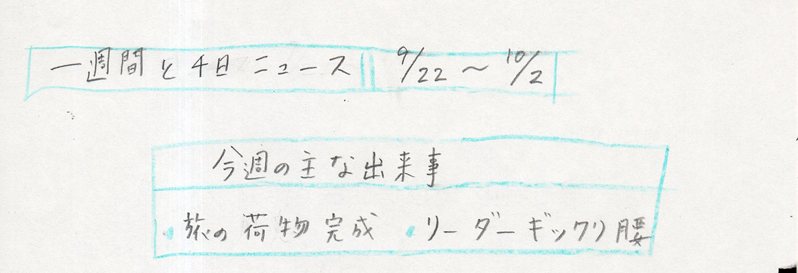 一週間と4日ニュース 9/22〜10/2
今週の主な出来事
・旅の荷物完成 ・リーダーギックリ腰